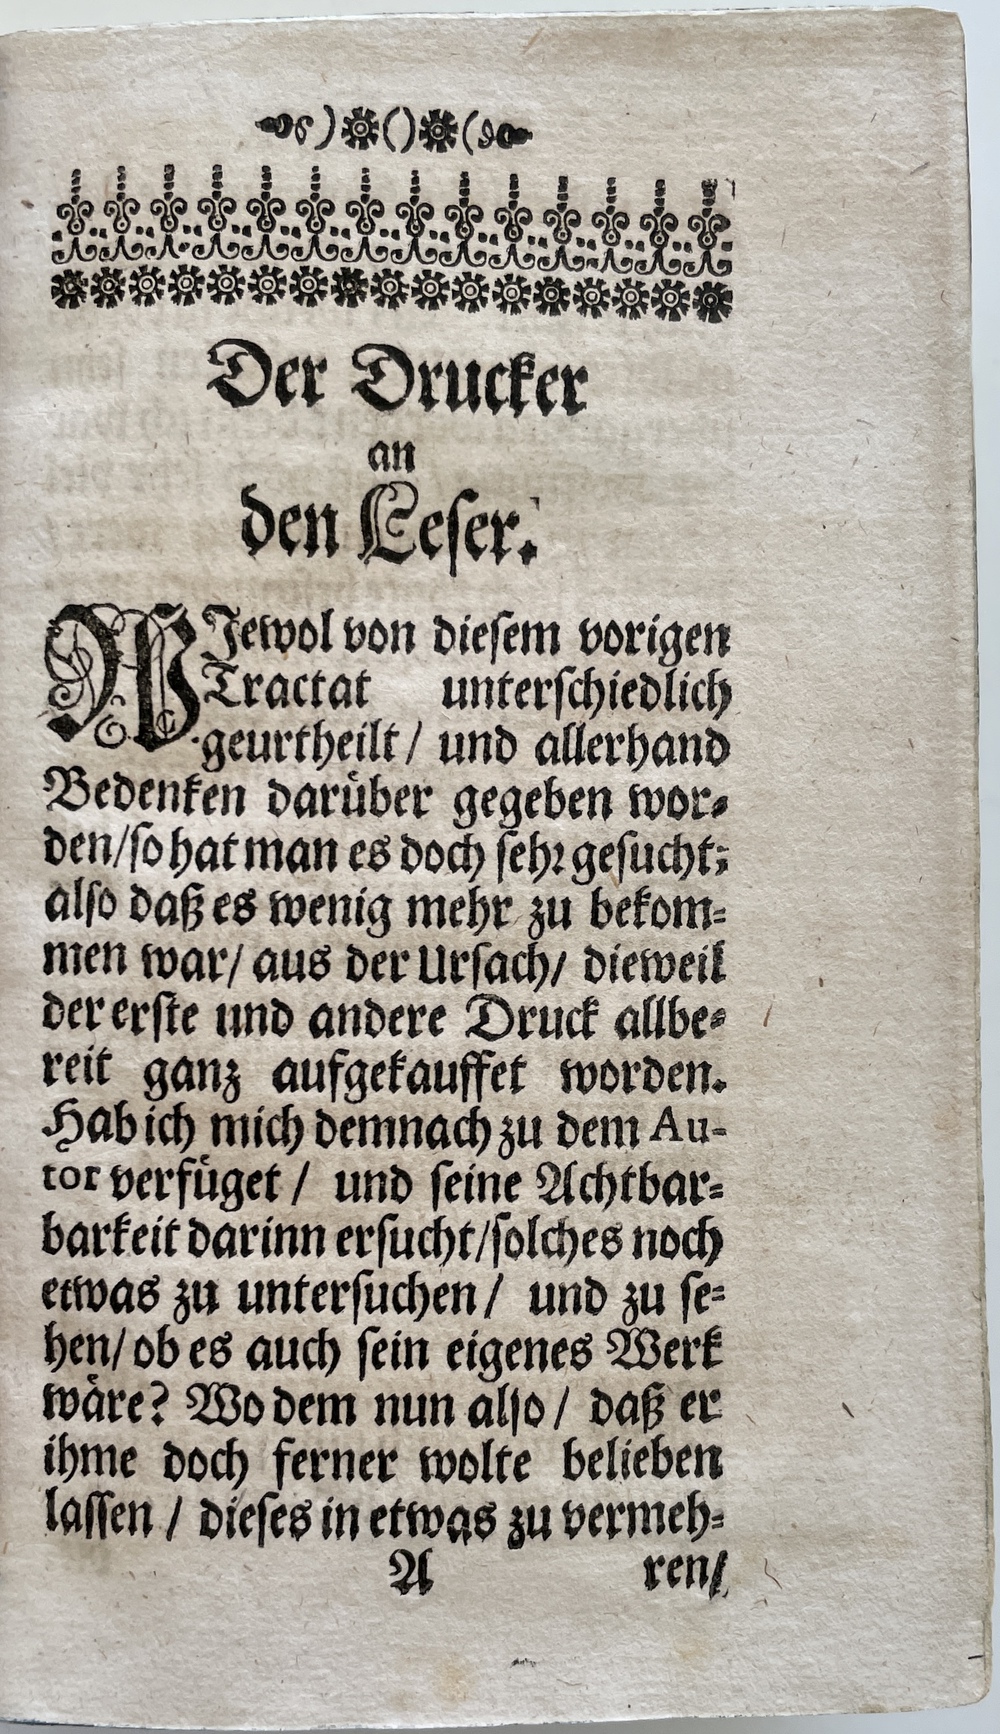 Der Drucker
an
den Leser.
WJewol von diesem vorigen
Tractat unterschiedlich
geurtheilt / und allerhand
Bedenken darüber gegeben wor-
den/so hat man es doch sehr gesucht;
also daß es wenig mehr zu bekom-
men war/ aus der Ursach/ dieweil
der erste und andere Druck allbe-
reit ganz aufgekauffet worden.
Hab ich mich demnach zu dem Au-
tor verfüget / und seine Achtbar-
barkeit darinn ersucht/solches noch
etwas zu untersuchen / und zu se-
hen/ ob es auch sein eigenes Werk
wäre? Wo dem nun also / daß er
ihme doch ferner wolte belieben
lassen / dieses in etwas zu vermeh-
A ren/